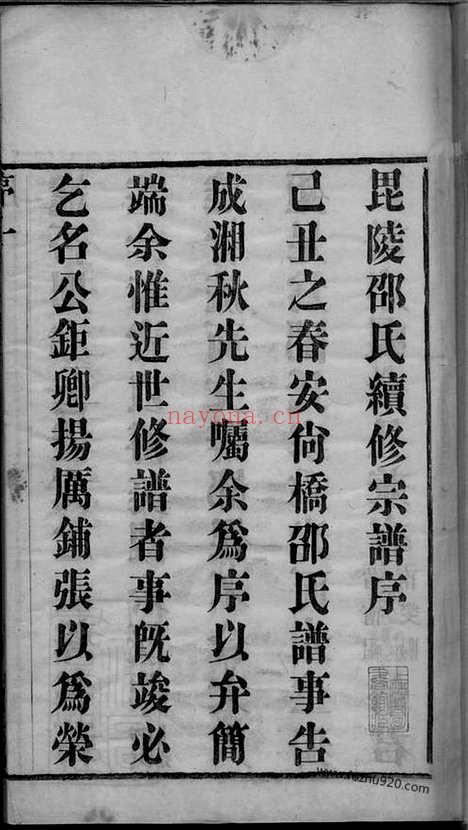 毘陵邵氏續修宗譜序
己丑之春安尙橋邵氏譜事告
成湘秋先生囑余爲序以弁簡
端余惟近世修譜者事旣竣必
乞名公鉅卿揚厲鋪張以爲榮
序 一
nayona.cn